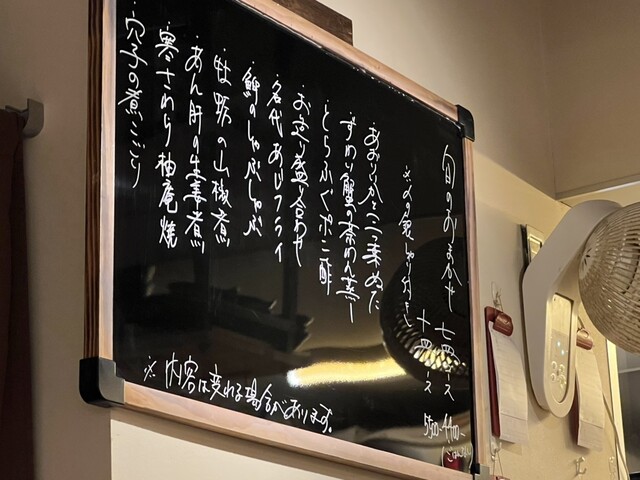 旬のおまかせ 七品コース
十品コース
※〆の銀しゃり付き
あおりいかと二つ葉ぬた
ずわい蟹の茶わん蒸し
とらふぐポン酢
お造り盛り合わせ
名代 あじフライ
鰤のしゃぶしゃぶ
牡蛎の山椒煮
あん肝の生姜煮
寒さわら柚庵焼
穴子の煮こごり
※内容は変わる場合があります。